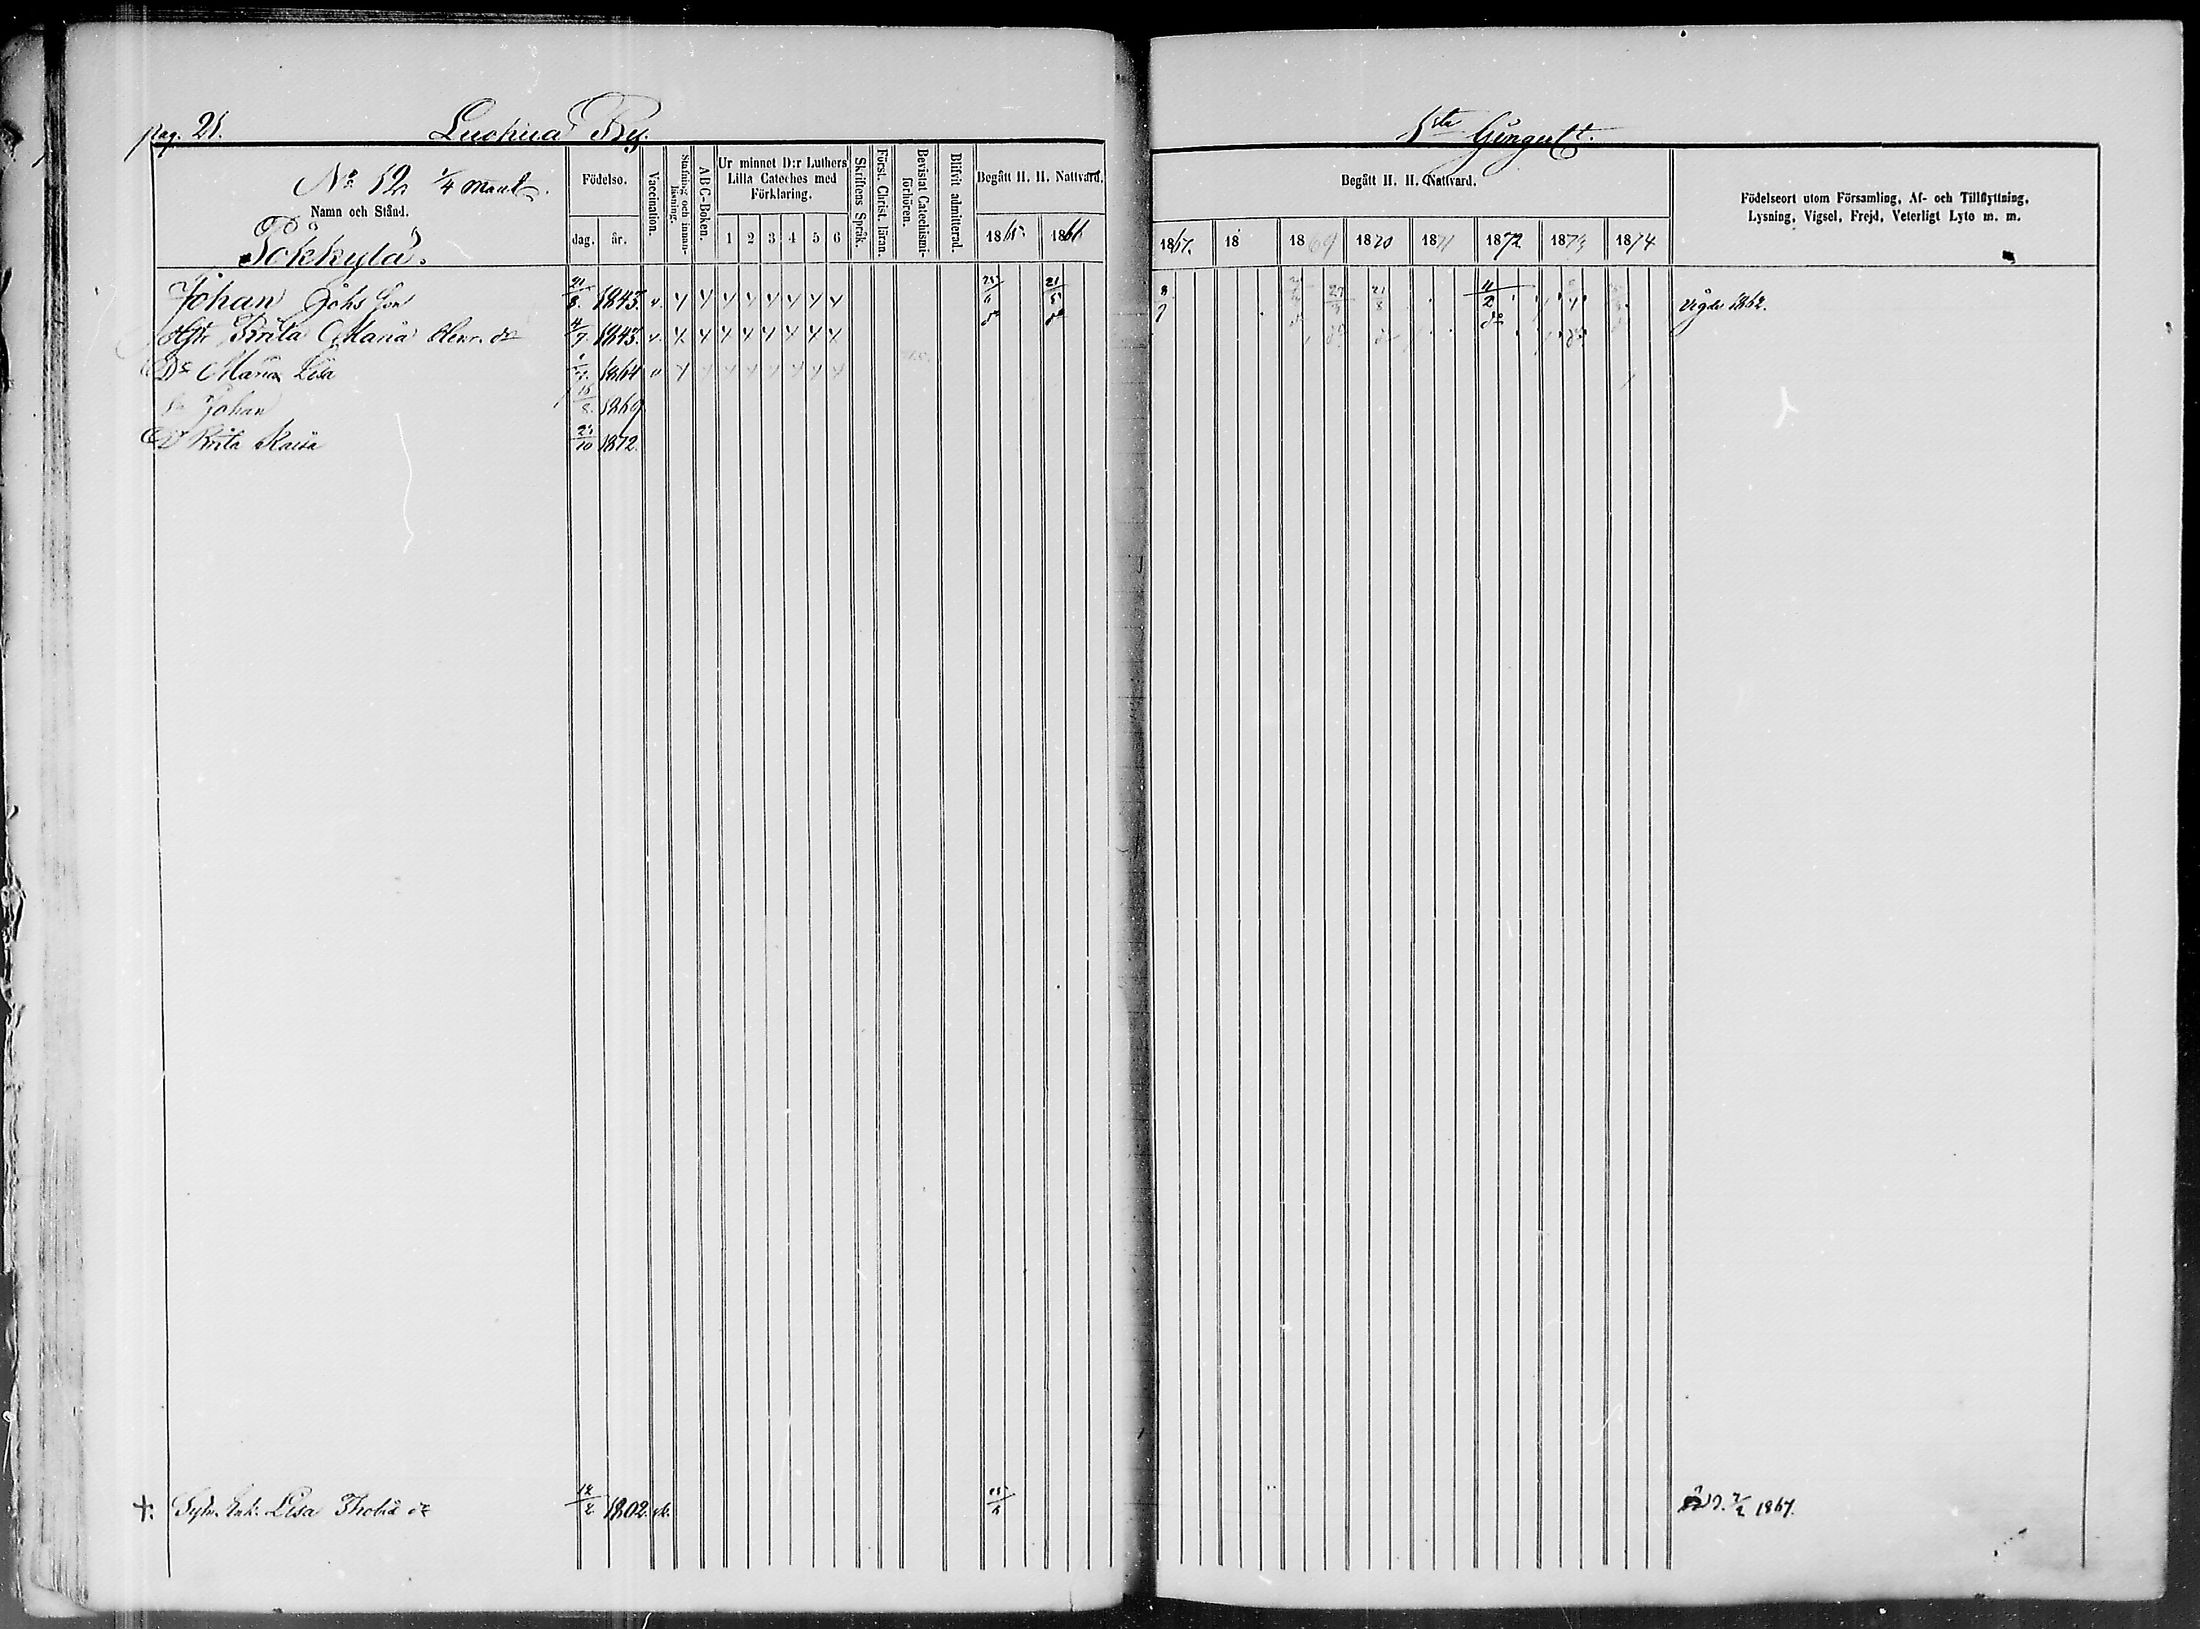 pag. 21. Luohua By.
1sta Gången
No 12 1/4 mantl.
Namn och Stånd.
Födelse.
dag. år.
Vaccination.
Stafning och innanläsning.
ABC-Boken.
Ur minnet D:r Luthers Lilla Cateches med Förklaring.
1 2 3 4 5 6
Skriftens Språk.
Först. Christ. läran.
Bevistat Catechismi-förhören.
Blifvit admitterad.
Begått H. H. Nattvard.
1865 1866
Begått H. H. Nattvard.
1867. 18 1869 1870 1871 1872 1873 1874
Födelseort utom Församling, Af- och Tillflyttning,
Lysning, Vigsel, Frejd, Veterligt Lyte m. m.
Tökkylä.
Johan Johs Son 21/8. 1843. v. 25/6 21/5 8/7 27/3 21/8 11/2 Vigde 1862.
Hstr Brita Maria Henr. dr 4/9. 1843. v. do do do do do
Dr Maria Lisa 1864 v
Sn Johan 15/8. 1869
Dr Brita Kaisa 25/10 1872.
+. Sytn. Enk. Lisa Thobiä dr 12/2 1802. 25/6 Död. 7/2 1867.